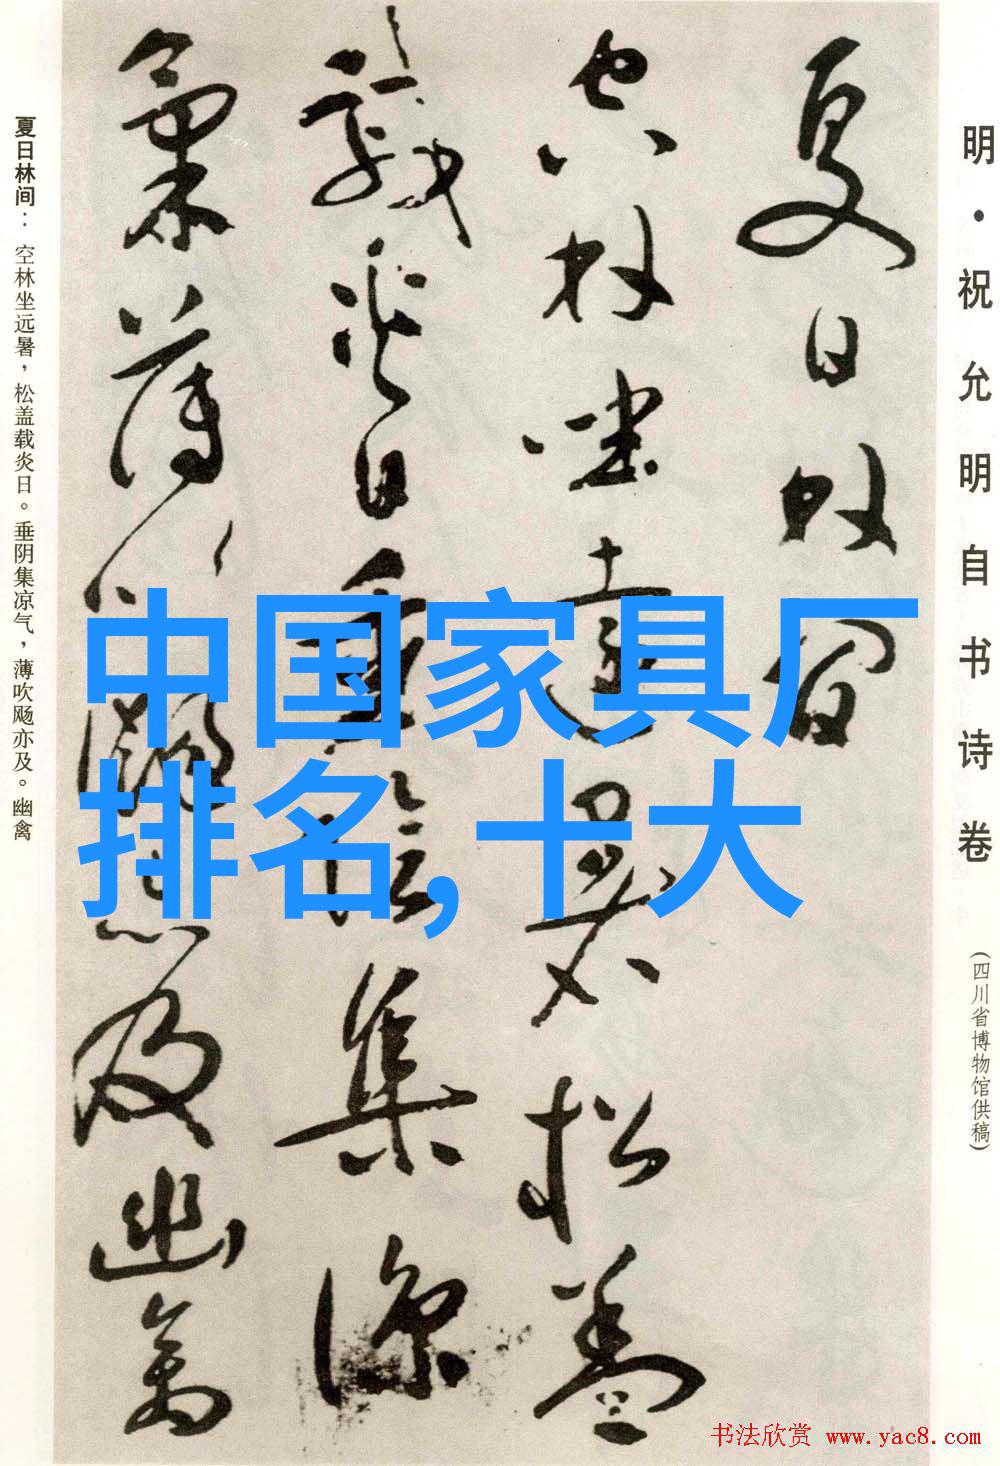 明·祝允明自书诗卷
(四川省博物馆供稿)
夏日林间
空林坐远暑松盖
载炎日垂阴集凉
气薄吹飏亦及幽禽
夏日林间：空林坐远暑，松盖载炎日。垂阴集凉气，薄吹飏亦及。幽禽
中国家具厂
排名,十大
书法欣赏 www.yac8.com